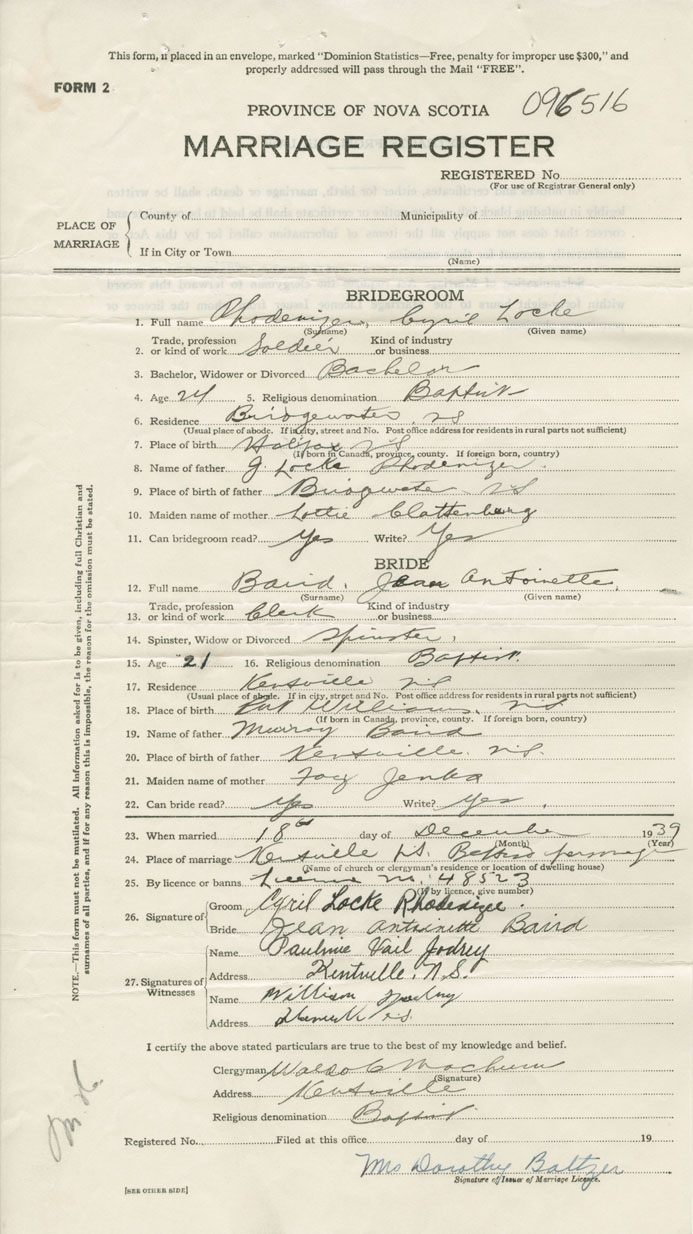 This form, if placed in an envelope, marked "Dominion Statistics—Free, penalty for improper use $300," and
properly addressed will pass through the Mail "FREE".
FORM 2
096516
PROVINCE OF NOVA SCOTIA
MARRIAGE REGISTER
REGISTERED No.
(For use of Registrar General only)
PLACE OF MARRIAGE
County of Municipality of
If in City or Town
(Name)
BRIDEGROOM
1. Full name Rhodenizer, Cyril Locke
(Surname) (Given name)
2. Trade, profession or kind of work Soldier Kind of industry or business
3. Bachelor, Widower or Divorced Bachelor
4. Age 24 5. Religious denomination Baptist
6. Residence Bridgewater, NS
(Usual place of abode. If in city, street and No. Post office address for residents in rural parts not sufficient)
7. Place of birth Halifax NS
(If born in Canada, province, county. If foreign born, country)
8. Name of father J. Locke Rhodenizer
9. Place of birth of father Bridgewater NS
10. Maiden name of mother Lottie Clattenburg
11. Can bridegroom read? Yes Write? Yes
BRIDE
12. Full name Baird, Jean Antoinette
(Surname) (Given name)
13. Trade, profession or kind of work Clerk Kind of industry or business
14. Spinster, Widow or Divorced Spinster
15. Age 21 16. Religious denomination Baptist
17. Residence Kentville NS
(Usual place of abode. If in city, street and No. Post office address for residents in rural parts not sufficient)
18. Place of birth Port Williams, NS
(If born in Canada, province, county. If foreign born, country)
19. Name of father Murray Baird
20. Place of birth of father Kentville NS
21. Maiden name of mother Jenks
22. Can bride read? Yes Write? Yes
23. When married 18th day of December 1939
(Month) (Year)
24. Place of marriage Kentville NS. Baptist parsonage
(Name of church or clergyman's residence or location of dwelling house)
25. By licence or banns License No. 48523
(If by licence, give number)
26. Signature of
Groom Cyril Locke Rhodenizer
Bride Jean Antoinette Baird
27. Signatures of Witnesses
Name Pauline Vail Jodrey
Address Kentville, N.S.
Name Jodrey
Address Kentville NS
I certify the above stated particulars are true to the best of my knowledge and belief.
Clergyman Waldo C Machum
(Signature)
Address Kentville
Religious denomination Baptist
Registered No. Filed at this office day of 19
Mrs Dorothy Baltzer
Signature of Issuer of Marriage Licence.
[SEE OTHER SIDE]
NOTE.—This form must not be mutilated. All information asked for is to be given, including full Christian and
surnames of all parties, and if for any reason this is impossible, the reason for the omission must be stated.